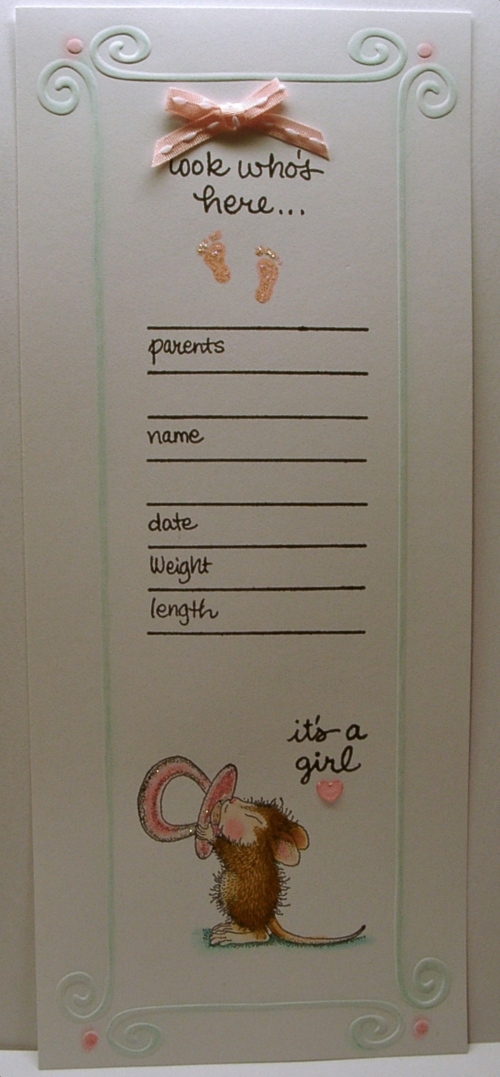 look who's
here...
parents
name
date
Weight
length
it's a
girl